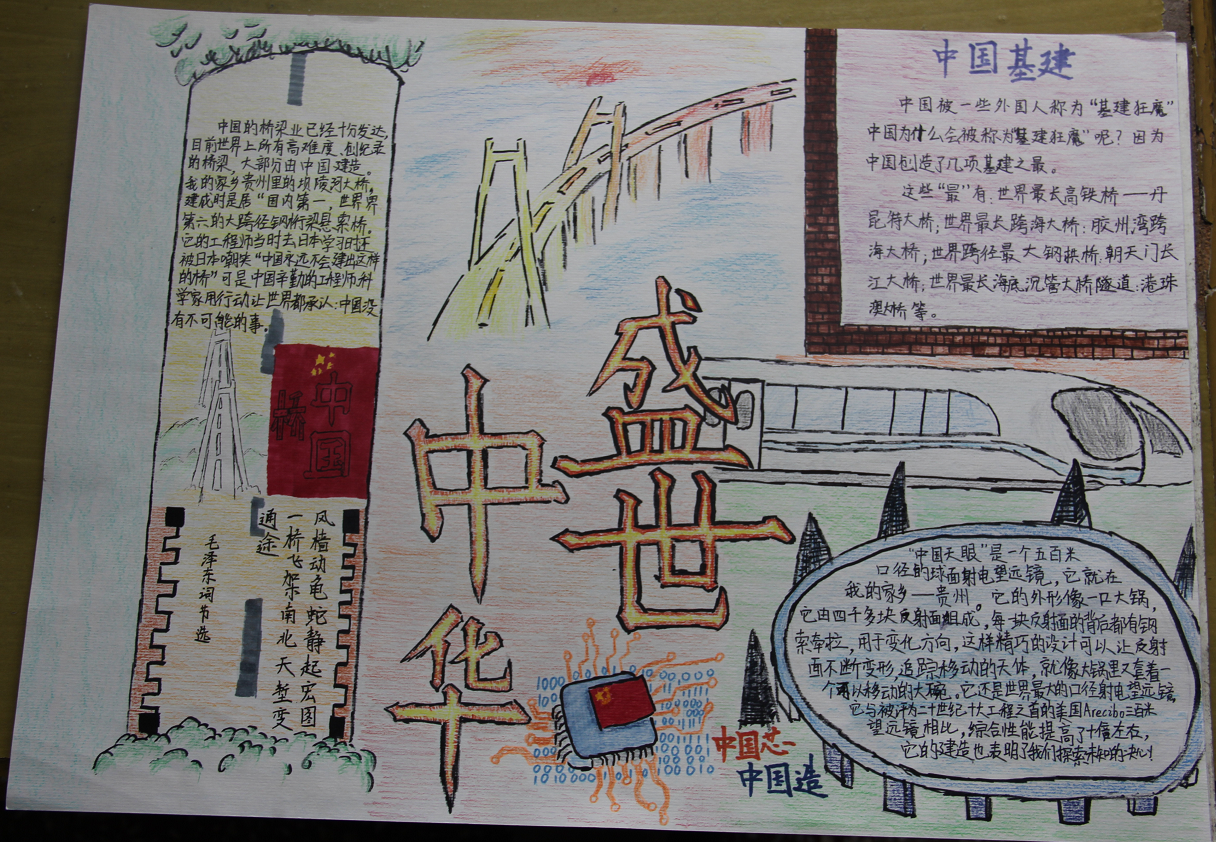 中国的桥梁业已经十分发达,
目前世界上所有高难度、创纪录
的桥梁,大部分由中国建造。
我的家乡贵州里的坝陵河大桥,
建成时是居“国内第一,世界界
第六的大跨径钢桁梁悬索桥。
它的工程师当时去日本学习时还
被日本嘲笑“中国永远不会建出这样
的桥”可是中国辛勤的工程师、科
学家用行动让世界都承认:中国没
有不可能的事。
中国
桥
风樯动龟蛇静起宏图
一桥飞架南北天堑变
通途
毛泽东词节选
盛世
中华
中国基建
中国被一些外国人称为“基建狂魔”
中国为什么会被称为“基建狂魔”呢?因为
中国创造了几项基建之最。
这些“最”有:世界最长高铁桥——丹
昆特大桥;世界最长跨海大桥:胶州湾跨
海大桥;世界跨径最大钢拱桥:朝天门长
江大桥;世界最长海底沉管大桥隧道:港珠
澳大桥等。
中国芯
中国造
“中国天眼”是一个五百米
口径的球面射电望远镜,它就在
我的家乡——贵州。它的外形像一口大锅,
它由四千多块反射面组成,每一块反射面的背后都有钢
索牵拉,用于变化方向,这样精巧的设计可以让反射
面不断变形,追踪移动的天体,就像大锅里又套着一
个可以移动的大碗。它还是世界最大的口径射电望远镜,
它与被评为二十世纪十大工程之首的美国Arecibo三百米
望远镜相比,综合性能提高了十倍左右,
它的建造也表明了我们探索未知的决心!